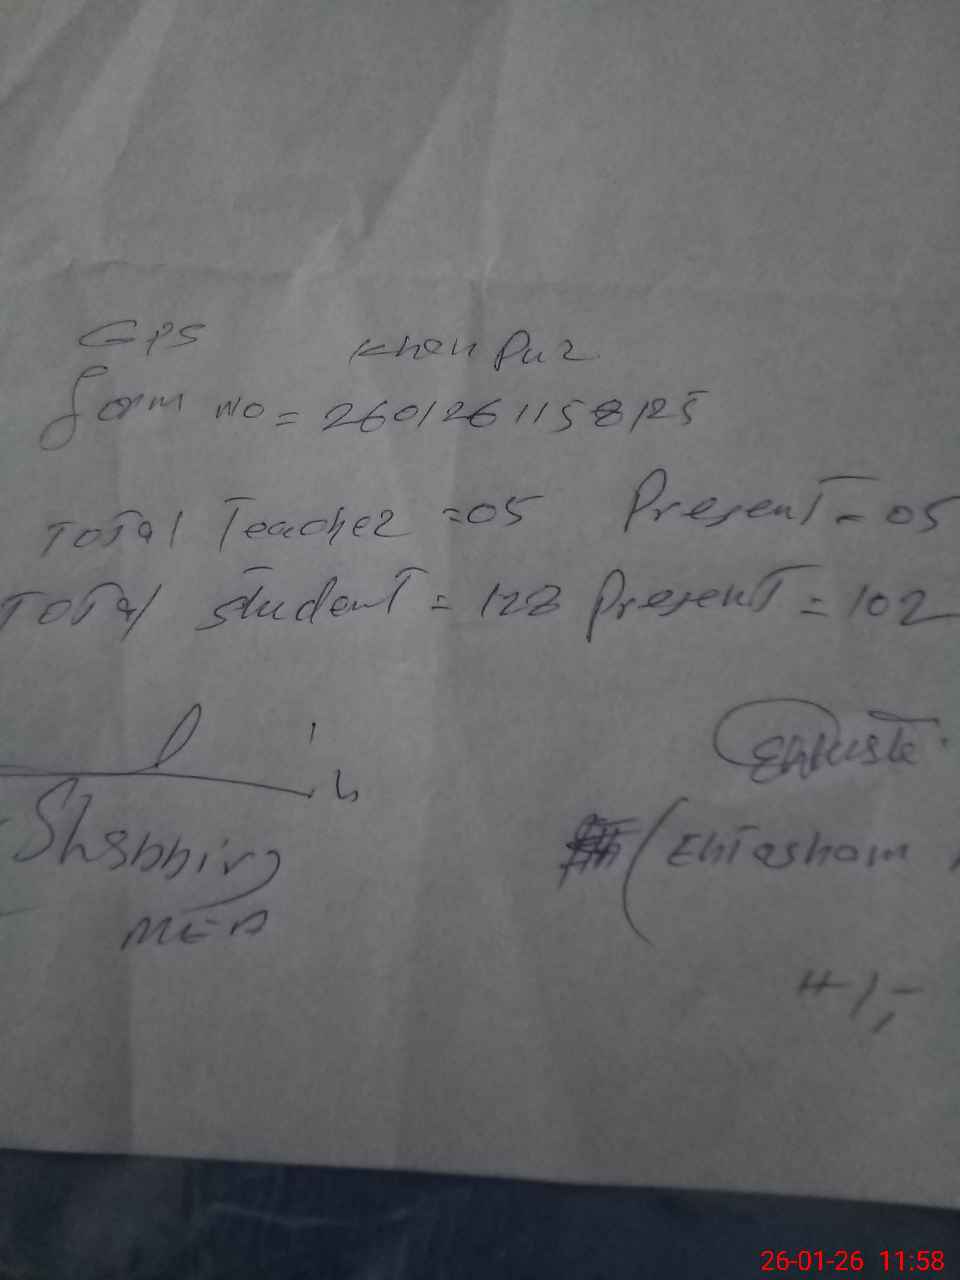 GPS Khan Pur
form no = 2601261158125
Total Teacher = 05 Present = 05
Total student = 128 Present = 102
Shabbir
MEA
(Ehtasham
26-01-26 11:58